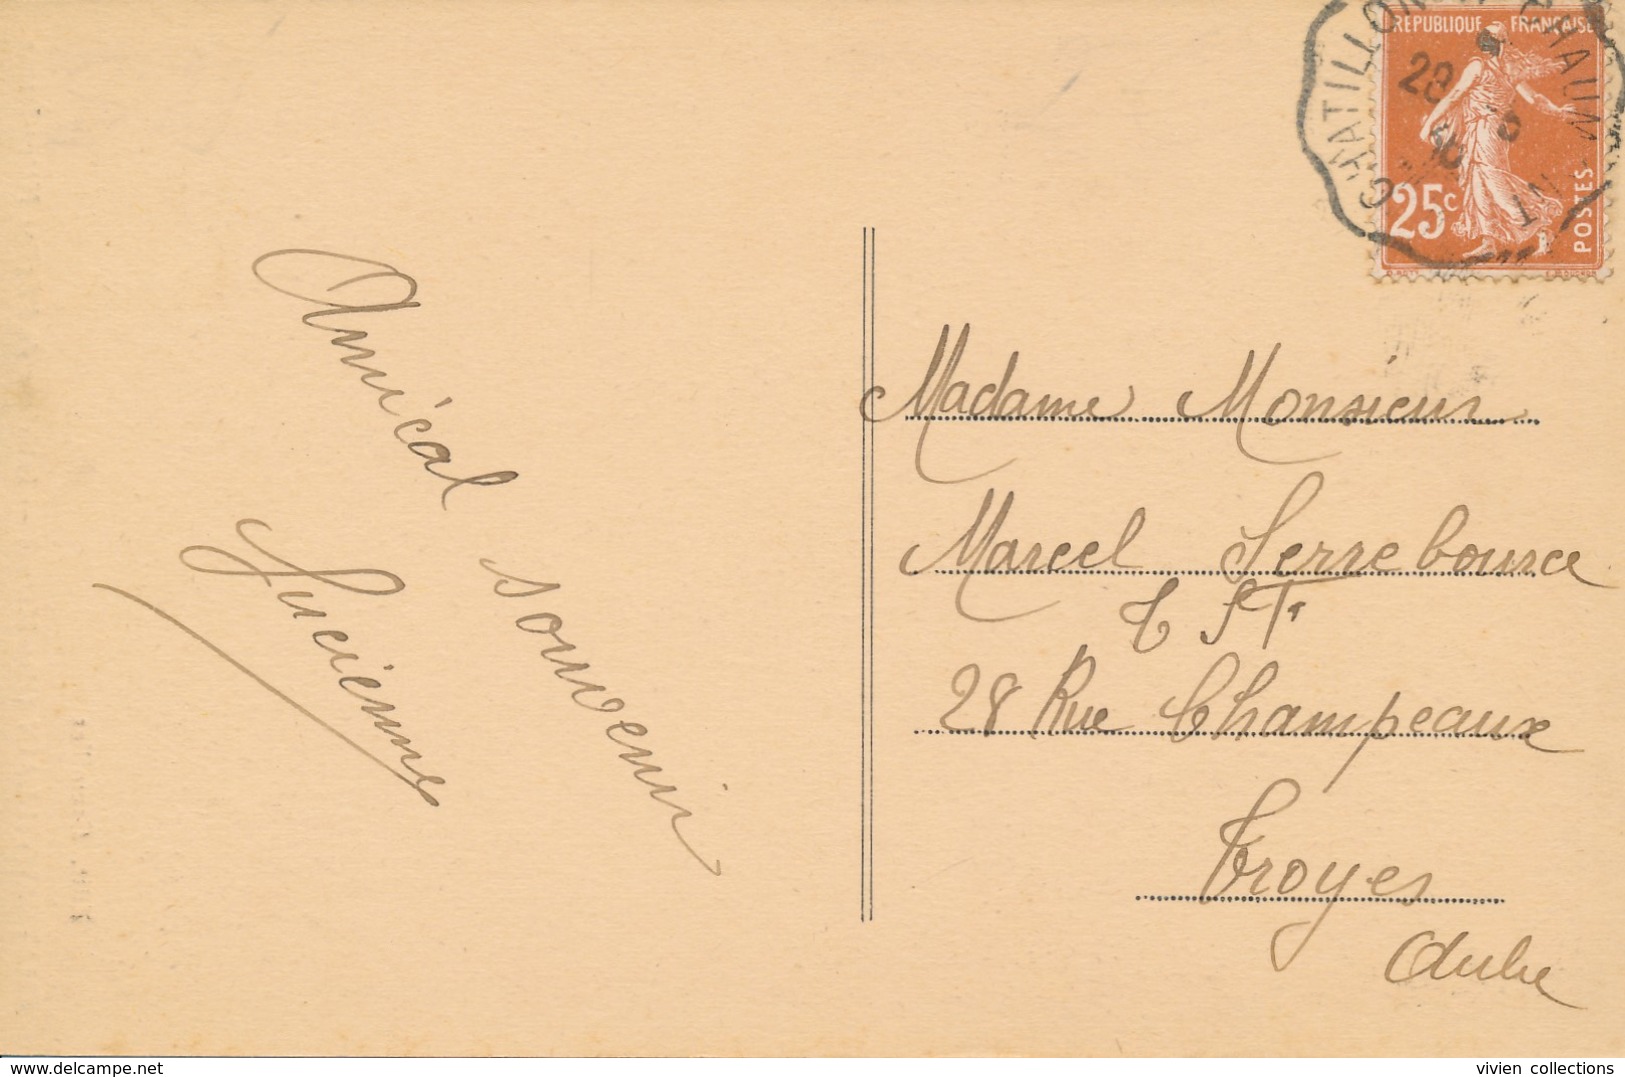 RÉPUBLIQUE FRANÇAISE
CHATILLON
28
25c
POSTES
Amical
souvenir
Lucienne
Madame Monsieur
Marcel Serrebource
28 Rue Champeaux
Troyes
Aube
vivien collections
www.delcampe.net